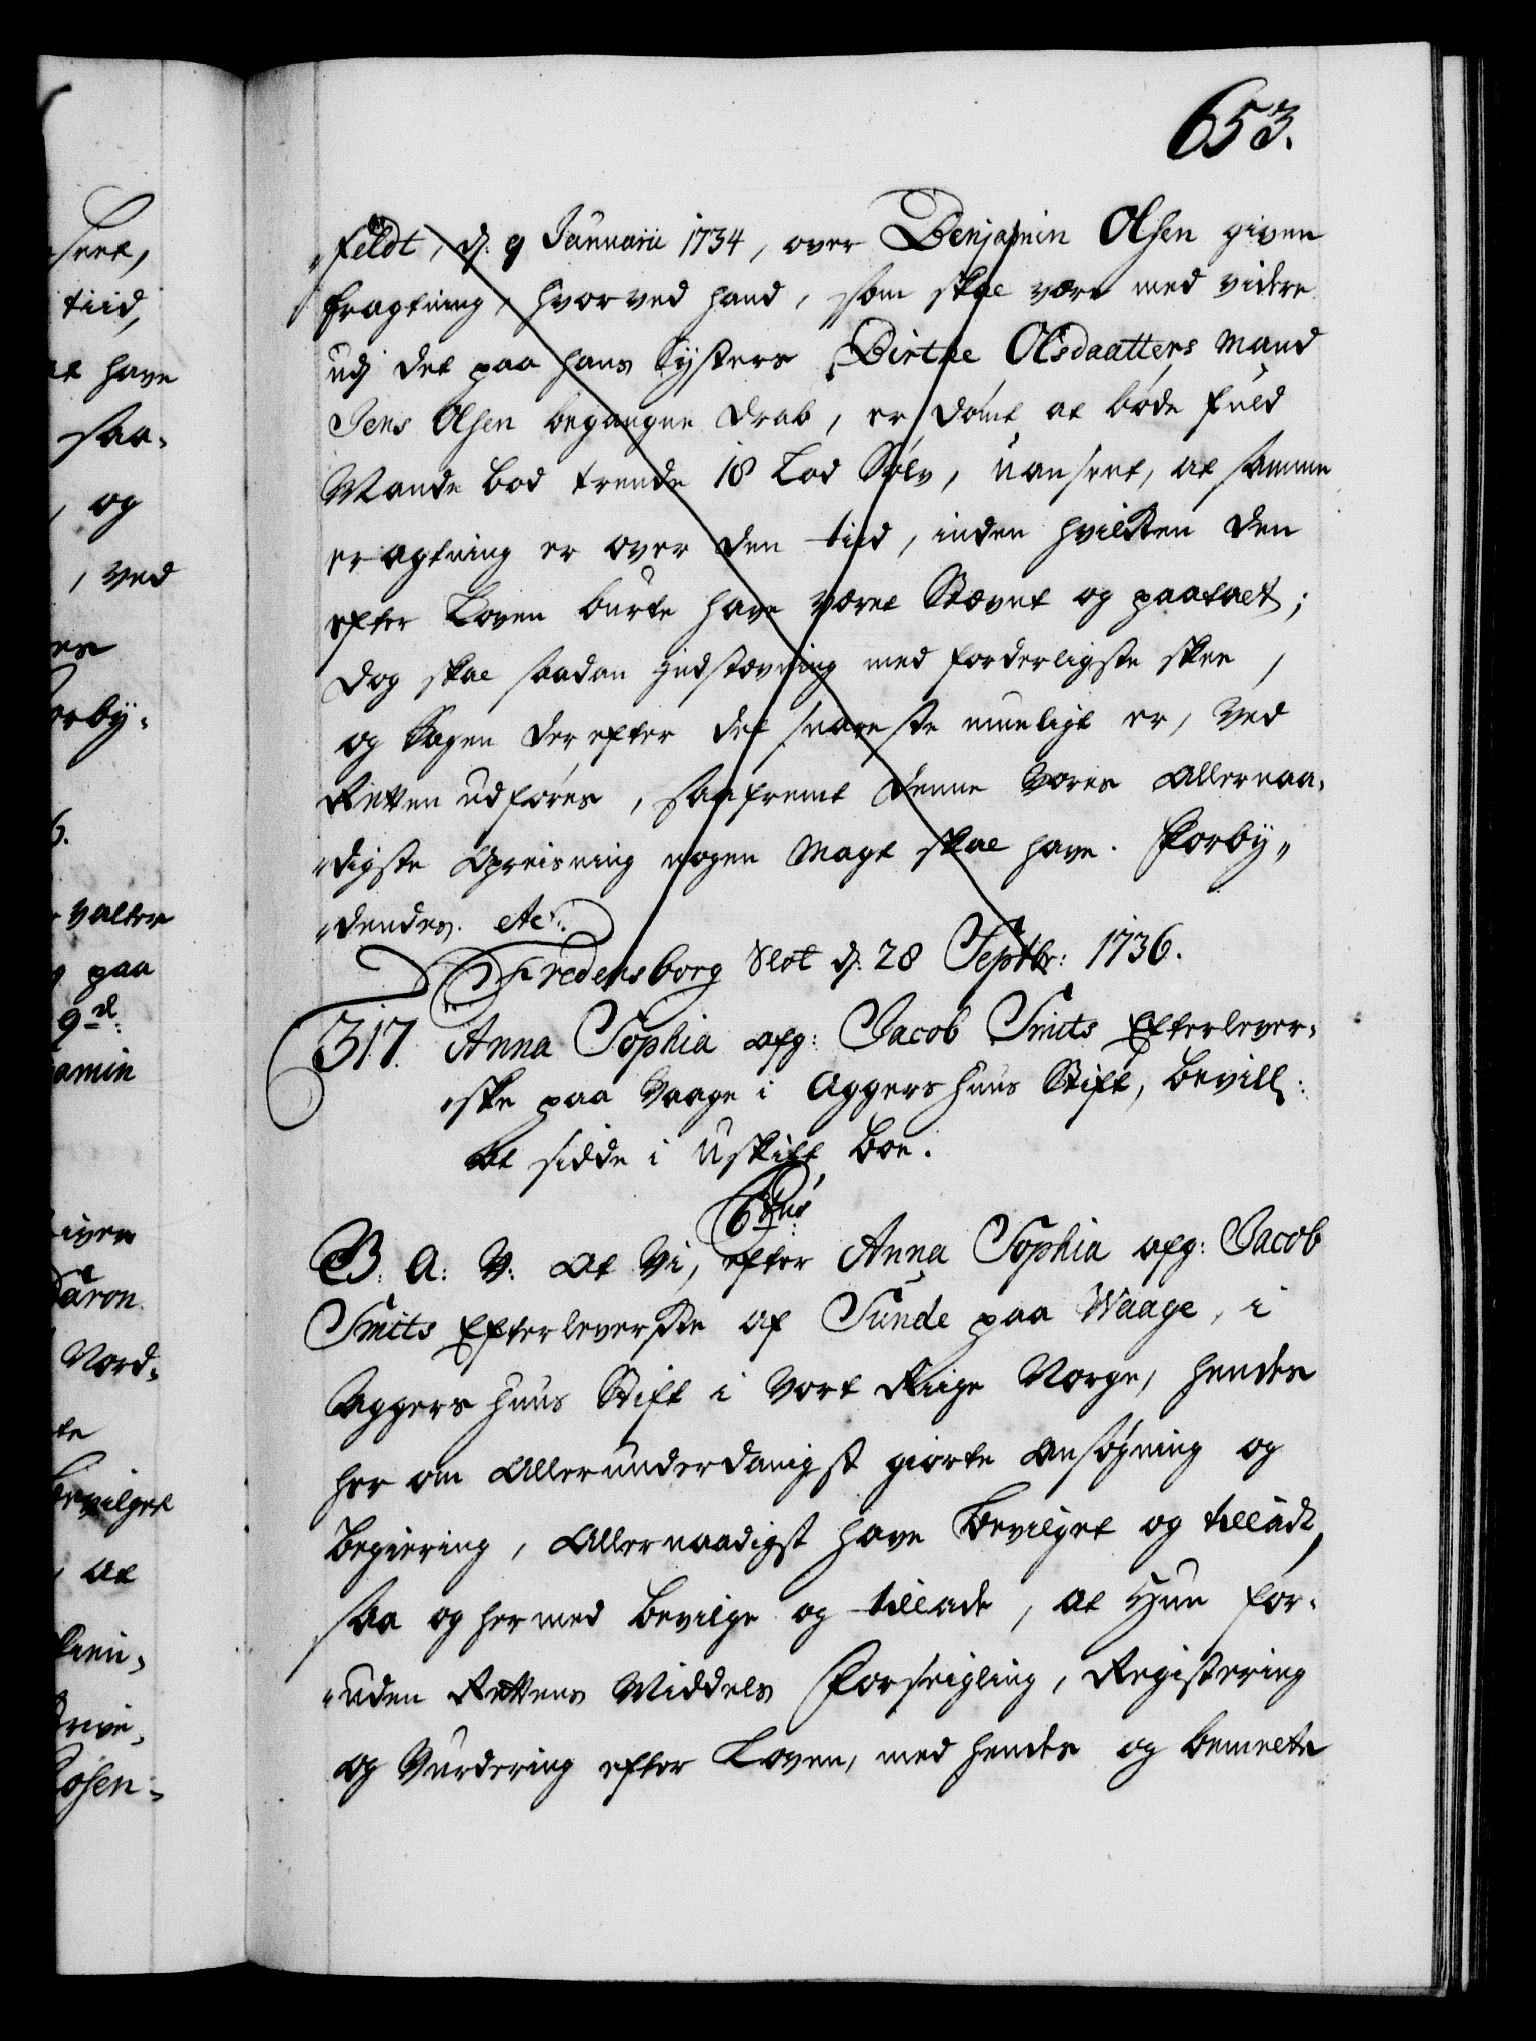 653.
„feldt, d. 9 Januarii 1734, over Benjamin Olsen given
fragtning, hvorved hand, som skal være med videre
udj det paa hans Systers Birthe Olsdaatters Mand
Jens Olsen begangne Drab, er dømt at bøde fuld
Mande bod trende 18 Lod Sølv, uanseet, at samme
eragtning er over den tiid, inden hvilken den
efter Loven burte have været Stævnt og paatalt;
dog skal saadan Indstævning med forderligste skee,
og Sagen derefter det snareste mueligt er, ved
Retten udføres, saafremt denne Vores Allernaa-
„digste Opreisning nogen Magt skal have. Forby„
„dendes. etc:
Fredensborg Slot d. 28 Septbr: 1736.
317. Anna Sophia afg: Jacob Smits Efterlever-
„ske paa Vaage i Aggershuus Stift, Bevill:
at sidde i uskift Boe.
B: A: V: At Vi, efter Anna Sophia afg: Jacob
Smits Efterleverske af Sunde paa Waage, i
Aggershuus Stift i Vort Riige Norge, hendes
her om Allerunderdanigst giorte Ansøgning og
Begiering, Allernaadigst have Bevilget og tilladt,
saa og hermed bevilge og tillade, at Hun for-
„uden Rettens Middels Forseigling, Registering
og Vurdering efter Loven, med hendes og bemeelte
seet,
tiid,
at have
saa-
, og
, ved
orby-
6.
valter
paa
9d:
amin
iver
Baron
Nord-
te
Bevilget
, at
Rosen-